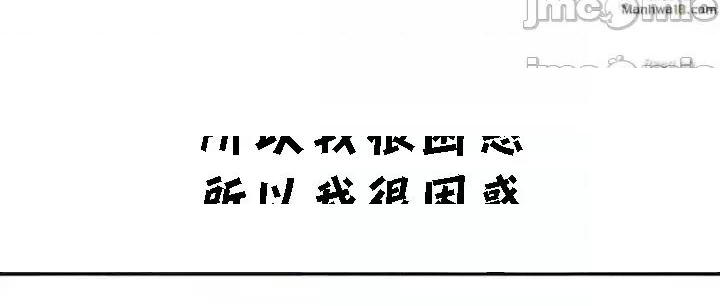 jmcomic
Manhwa18.com
所以我很困惑
所以我很困惑